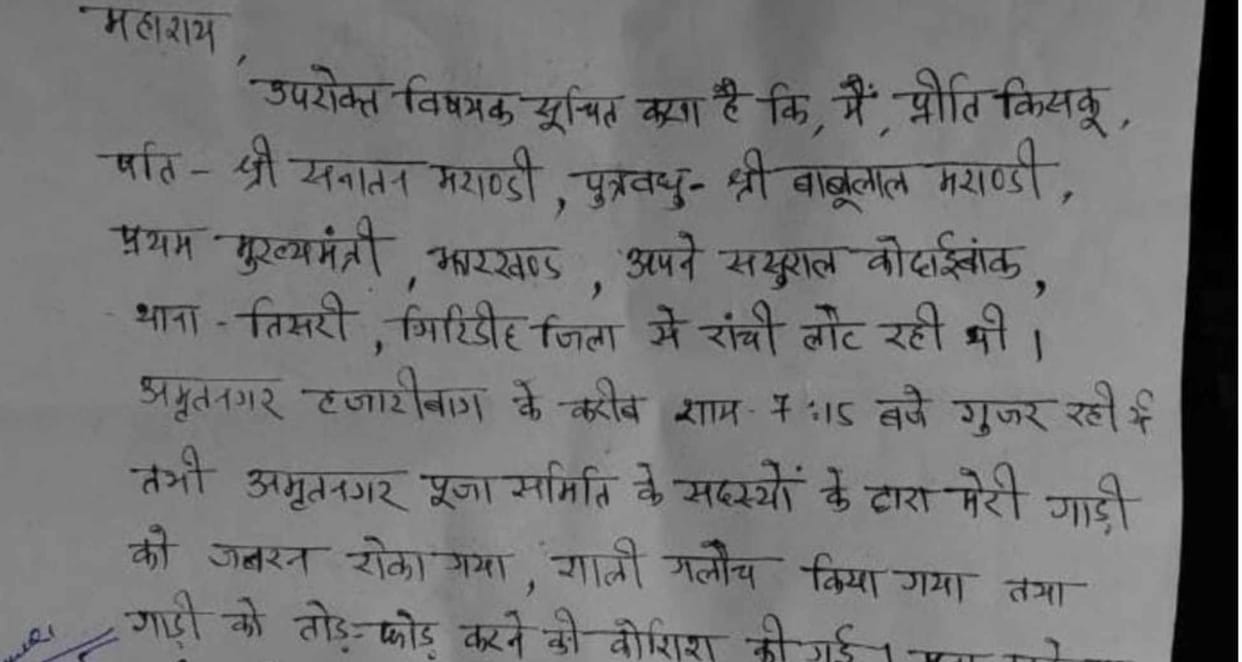 महाशय,
उपरोक्त विषयक सूचित करना है कि, मैं, प्रीति किसकू,
पति - श्री सनातन मराण्डी, पुत्रवधु - श्री बाबूलाल मराण्डी,
प्रथम मुख्यमंत्री, झारखण्ड, अपने ससुराल कोदाईबांक,
थाना - तिसरी, गिरिडीह जिला से रांची लौट रही थी।
अमृतनगर हजारीबाग के करीब शाम 7:15 बजे गुजर रही थी
तभी अमृतनगर पूजा समिति के सदस्यों के द्वारा मेरी गाड़ी
को जबरन रोका गया, गाली गलौच किया गया तथा
गाड़ी को तोड़-फोड़ करने की कोशिश की गई।